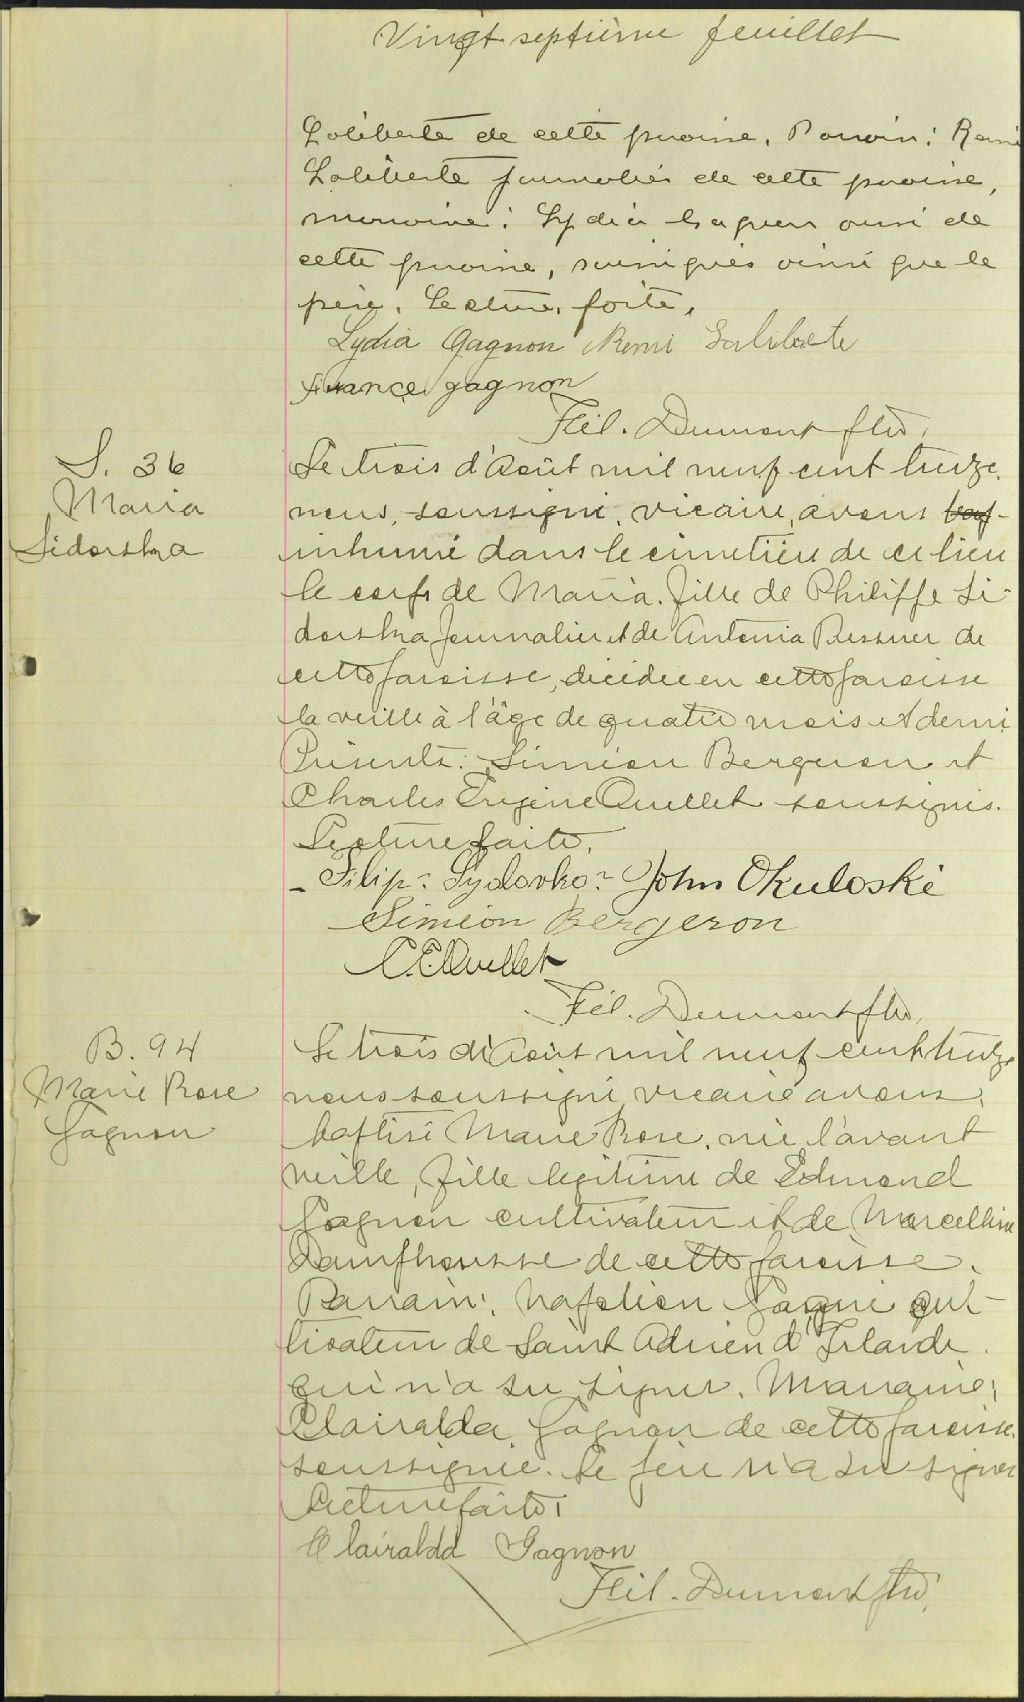 Vingt septième feuillet
Laliberté de cette paroisse. Parrain: Rémi
Laliberté journalier de cette paroisse,
marraine: Lydia Gagnon aussi de
cette paroisse, soussignés ainsi que le
père. Lecture faite.
Lydia Gagnon Rémi Laliberte
gagnon
Fél. Dumont ptre.
S. 36
Maria
Sidorska
Le trois d'Août mil neuf cent treize.
nous, soussigné, vicaire, avons bap-
inhumé dans le cimetière de ce lieu
le corps de Maria. fille de Philippe Si-
dorska journalier et de Antonia de
cette paroisse, décédée en cette paroisse
la veille à l'âge de quatre mois et demi
Présents: Siméon Bergeron et
Charles Eugène Ouellet soussignés.
Lecture faite.
Filip Sydorko John Okuloski
Siméon Bergeron
C.E. Ouellet
Fél. Dumont ptre.
B. 94
Marie Rose
Gagnon
Le trois d'Août mil neuf cent treize
nous soussigné, vicaire avons
baptisé Marie Rose, née l'avant
veille, fille légitime de Edmond
Gagnon cultivateur et de Marcelline
Damphousse de cette paroisse.
Parrain: Napoléon Gagné cul-
tivateur de Saint Adrien d'Irlande
qui n'a su signer. Marraine:
Clairalda Gagnon de cette paroisse
soussignée. Le père n'a su signer
Lecture faite.
Clairalda Gagnon
Fél. Dumont ptre.